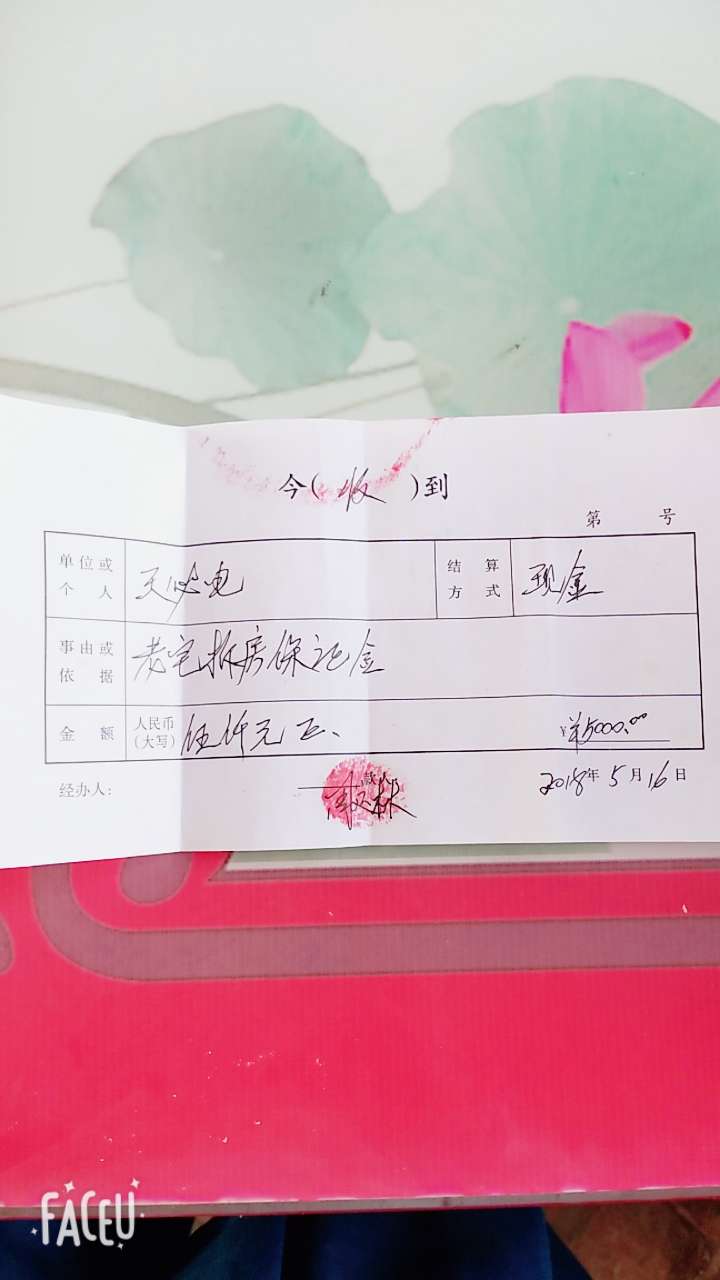 今(收)到
第 号
单位或个人 电 结算方式 现金
事由或依据 老宅拆房保证金
金额 人民币(大写) 伍仟元正、 ¥5000.00
经办人: 款人 林 2018年5月16日
FACEU